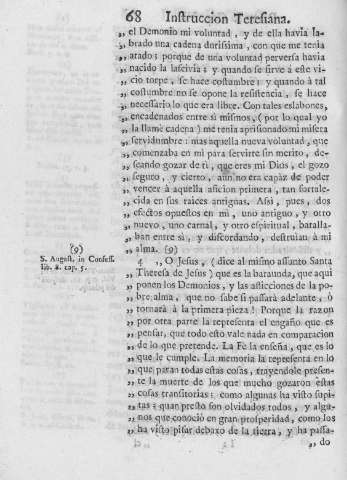 68 Instruccion Teresiana.
,, el Demonio mi voluntad, y de ella havia la-
,, brado una cadena dorissima, con que me tenia
,, atado: porque de una voluntad perversa havia
,, nacido la lascivia: y quando se sirve à este vi-
,, cio torpe, se hace costumbre: y quando à tal
,, costumbre no se opone la resistencia, se hace
,, necessario lo que era libre. Con tales eslabones,
,, encadenados entre sì mismos, (por lo qual yo
,, la llamè cadena) me tenia aprisionado mi misera
,, servidumbre: mas aquella nueva voluntad, que
,, comenzaba en mi para servirte sin merito, de-
,, seando gozar de ti, que eres mi Dios, el gozo
,, seguro, y cierto, aun no era capàz de poder
,, vencer à aquella aficion primera, tan fortale-
,, cida en sus raices antignas. Assi, pues, dos
,, efectos opuestos en mi, uno antiguo, y otro
,, nuevo, uno carnal, y otro espiritual, batalla-
,, ban entre sì, y discordando, destruìau à mi
,, alma. (9)
(9)
S. August. in Confess.
lib. 8. cap. 5.
4 ,, O Jesus, (dice al mismo assunto Santa
,, Theresa de Jesus) que es la baraunda, que aqui
,, ponen los Demonios, y las aflicciones de la po-
,, bre alma, que no sabe si passarà adelante, ò
,, tornarà à la primera pieza! Porque la razon
,, por otra parte la representa el engaño que es
,, pensar, que todo esto vale nada en comparacion
,, de lo que pretende. La Fè la enseña, que es lo
,, que le cumple. La memoria la representa en lo
,, que paran todas estas cosas, trayendole presen-
,, te la muerte de los que mucho gozaron estas
,, cosas transitorias: como algunas ha visto supi-
,, tas: quan presto son olvidados todos, y algu-
,, nos que conociò en gran prosperidad, como los
,, ha visto pisar debaxo de la tierra, y ha passa-
,, do